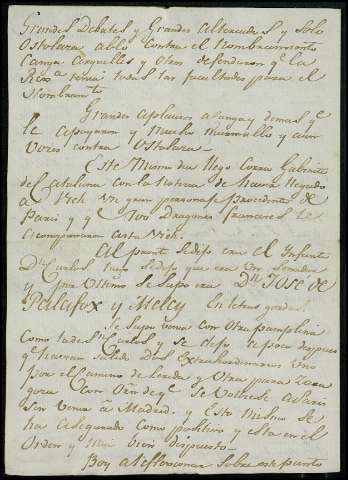 Grandes Debates y Grandes altercados y solo
Ostolaza ablo contra el Nombramiento
Canga Arguelles y otros defendieron qe la
Rexa tenia todas las facultades para el
Nombramto
Grandes aplausos a Canga y demas qe
le apoyaron y mucho murmullo y aun
voces contra Ostolaza
Este mismo dia llego Correo Gabinete
de Cataluña con la Noticia de haver llegado
a Vich un gran personaje procedente de
Paris y qe 400 Dragones franceses le
acompañaron asta Vich.
Al pront se dijo era el Infante
Dn Carlos, luego se dijo que era un Senador
y por ultimo se supo era Dn JOSE DE
Palafox y Melcy en letras gordas
Se supo venia con otra pamplina
como la de Sn Carlos y se dijo de poco despues
qe havian salido Dos Extrahordinarios uno
por el camino de Lerida y otro para Zara
goza con Orn de qe se volviese a Paris
sin venir a Madrid. y esto mismo se
ha asegurado como positivo y esta en el
Orden y mui bien dispuesto
Boy a reflexionar sobre este punto